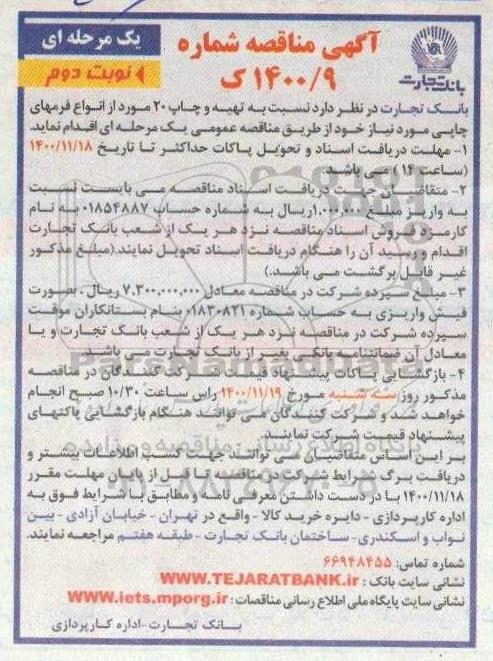 بانک تجارت
آگهی مناقصه شماره
۱۴۰۰/۹ ک
یک مرحله ای
نوبت دوم
بانک تجارت در نظر دارد نسبت به تهیه و چاپ ۲۰ مورد از انواع فرمهای
چاپی مورد نیاز خود از طریق مناقصه عمومی یک مرحله ای اقدام نماید.
۱- مهلت دریافت اسناد و تحویل پاکات حداکثر تا تاریخ ۱۴۰۰/۱۱/۱۸
(ساعت ۱۴) می باشد.
۲- متقاضیان جهت دریافت اسناد مناقصه می بایست نسبت
به واریز مبلغ ۱.۰۰۰.۰۰۰ریال به شماره حساب ۰۱۸۵۴۸۸۷ به نام
کارمزد فروش اسناد مناقصه نزد هر یک از شعب بانک تجارت
اقدام و رسید آن را هنگام دریافت اسناد تحویل نمایند.(مبلغ مذکور
غیر قابل برگشت می باشد.)
۳- مبلغ سپرده شرکت در مناقصه معادل ۷.۳۰۰.۰۰۰.۰۰۰ ریال، بصورت
فیش واریزی به حساب شماره ۰۱۸۳۰۸۲۱ بنام بستانکاران موقت
سپرده شرکت در مناقصه نزد هر یک از شعب بانک تجارت و یا
معادل آن ضمانتنامه بانکی بغیر از بانک تجارت می باشد.
۴- بازگشایی پاکات پیشنهاد قیمت شرکت کنندگان در مناقصه
مذکور روز سه شنبه مورخ ۱۴۰۰/۱۱/۱۹ راس ساعت ۱۰/۳۰ صبح انجام
خواهد شد و شرکت کنندگان می توانند هنگام بازگشایی پاکتهای
پیشنهاد قیمت شرکت نمایند.
بر این اساس متقاضیان می توانند جهت کسب اطلاعات بیشتر و
دریافت برگ شرایط شرکت در مناقصه تا قبل از پایان مهلت مقرر
۱۴۰۰/۱۱/۱۸ با در دست داشتن معرفی نامه و مطابق با شرایط فوق به
اداره کارپردازی - دایره خرید کالا - واقع در تهران - خیابان آزادی - بین
نواب و اسکندری- ساختمان بانک تجارت - طبقه هفتم مراجعه نمایند.
شماره تماس: ۶۶۹۴۸۴۵۵
نشانی سایت بانک : WWW.TEJARATBANK.ir
نشانی سایت پایگاه ملی اطلاع رسانی مناقصات : WWW.iets.mporg.ir
بانک تجارت-اداره کارپردازی